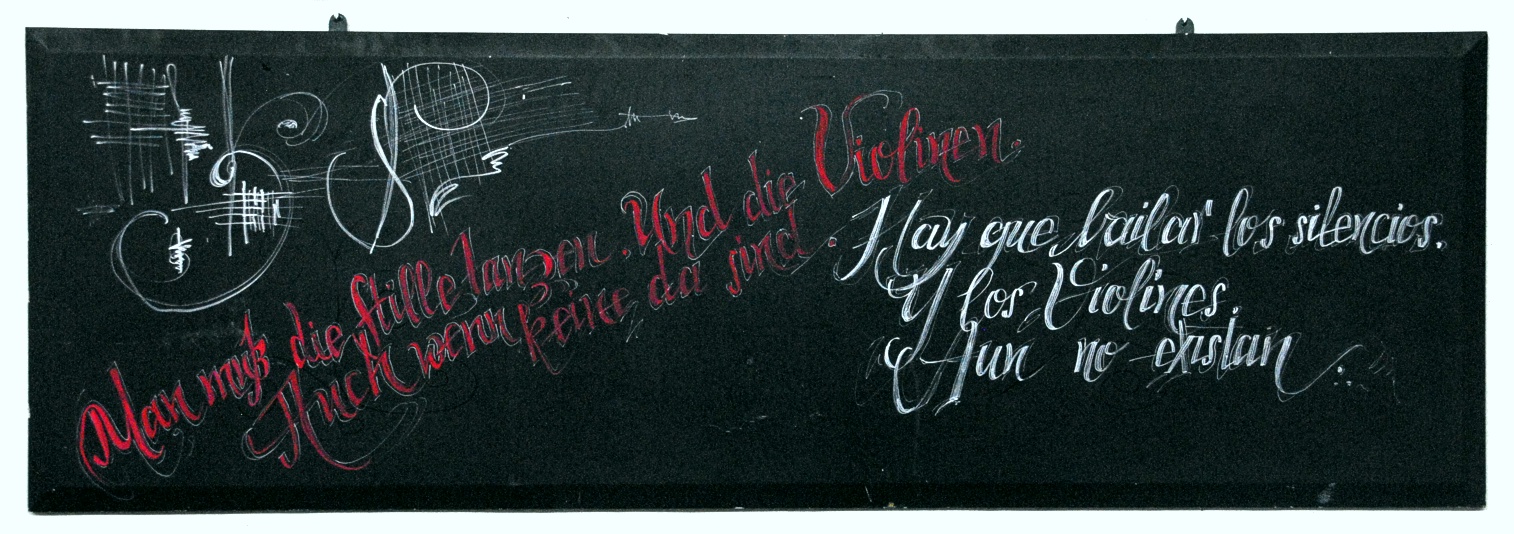 Man muß die Stille tanzen. Und die Violinen.
Auch wenn keine da sind.
Hay que bailar los silencios.
Y los Violines.
Aun no existan